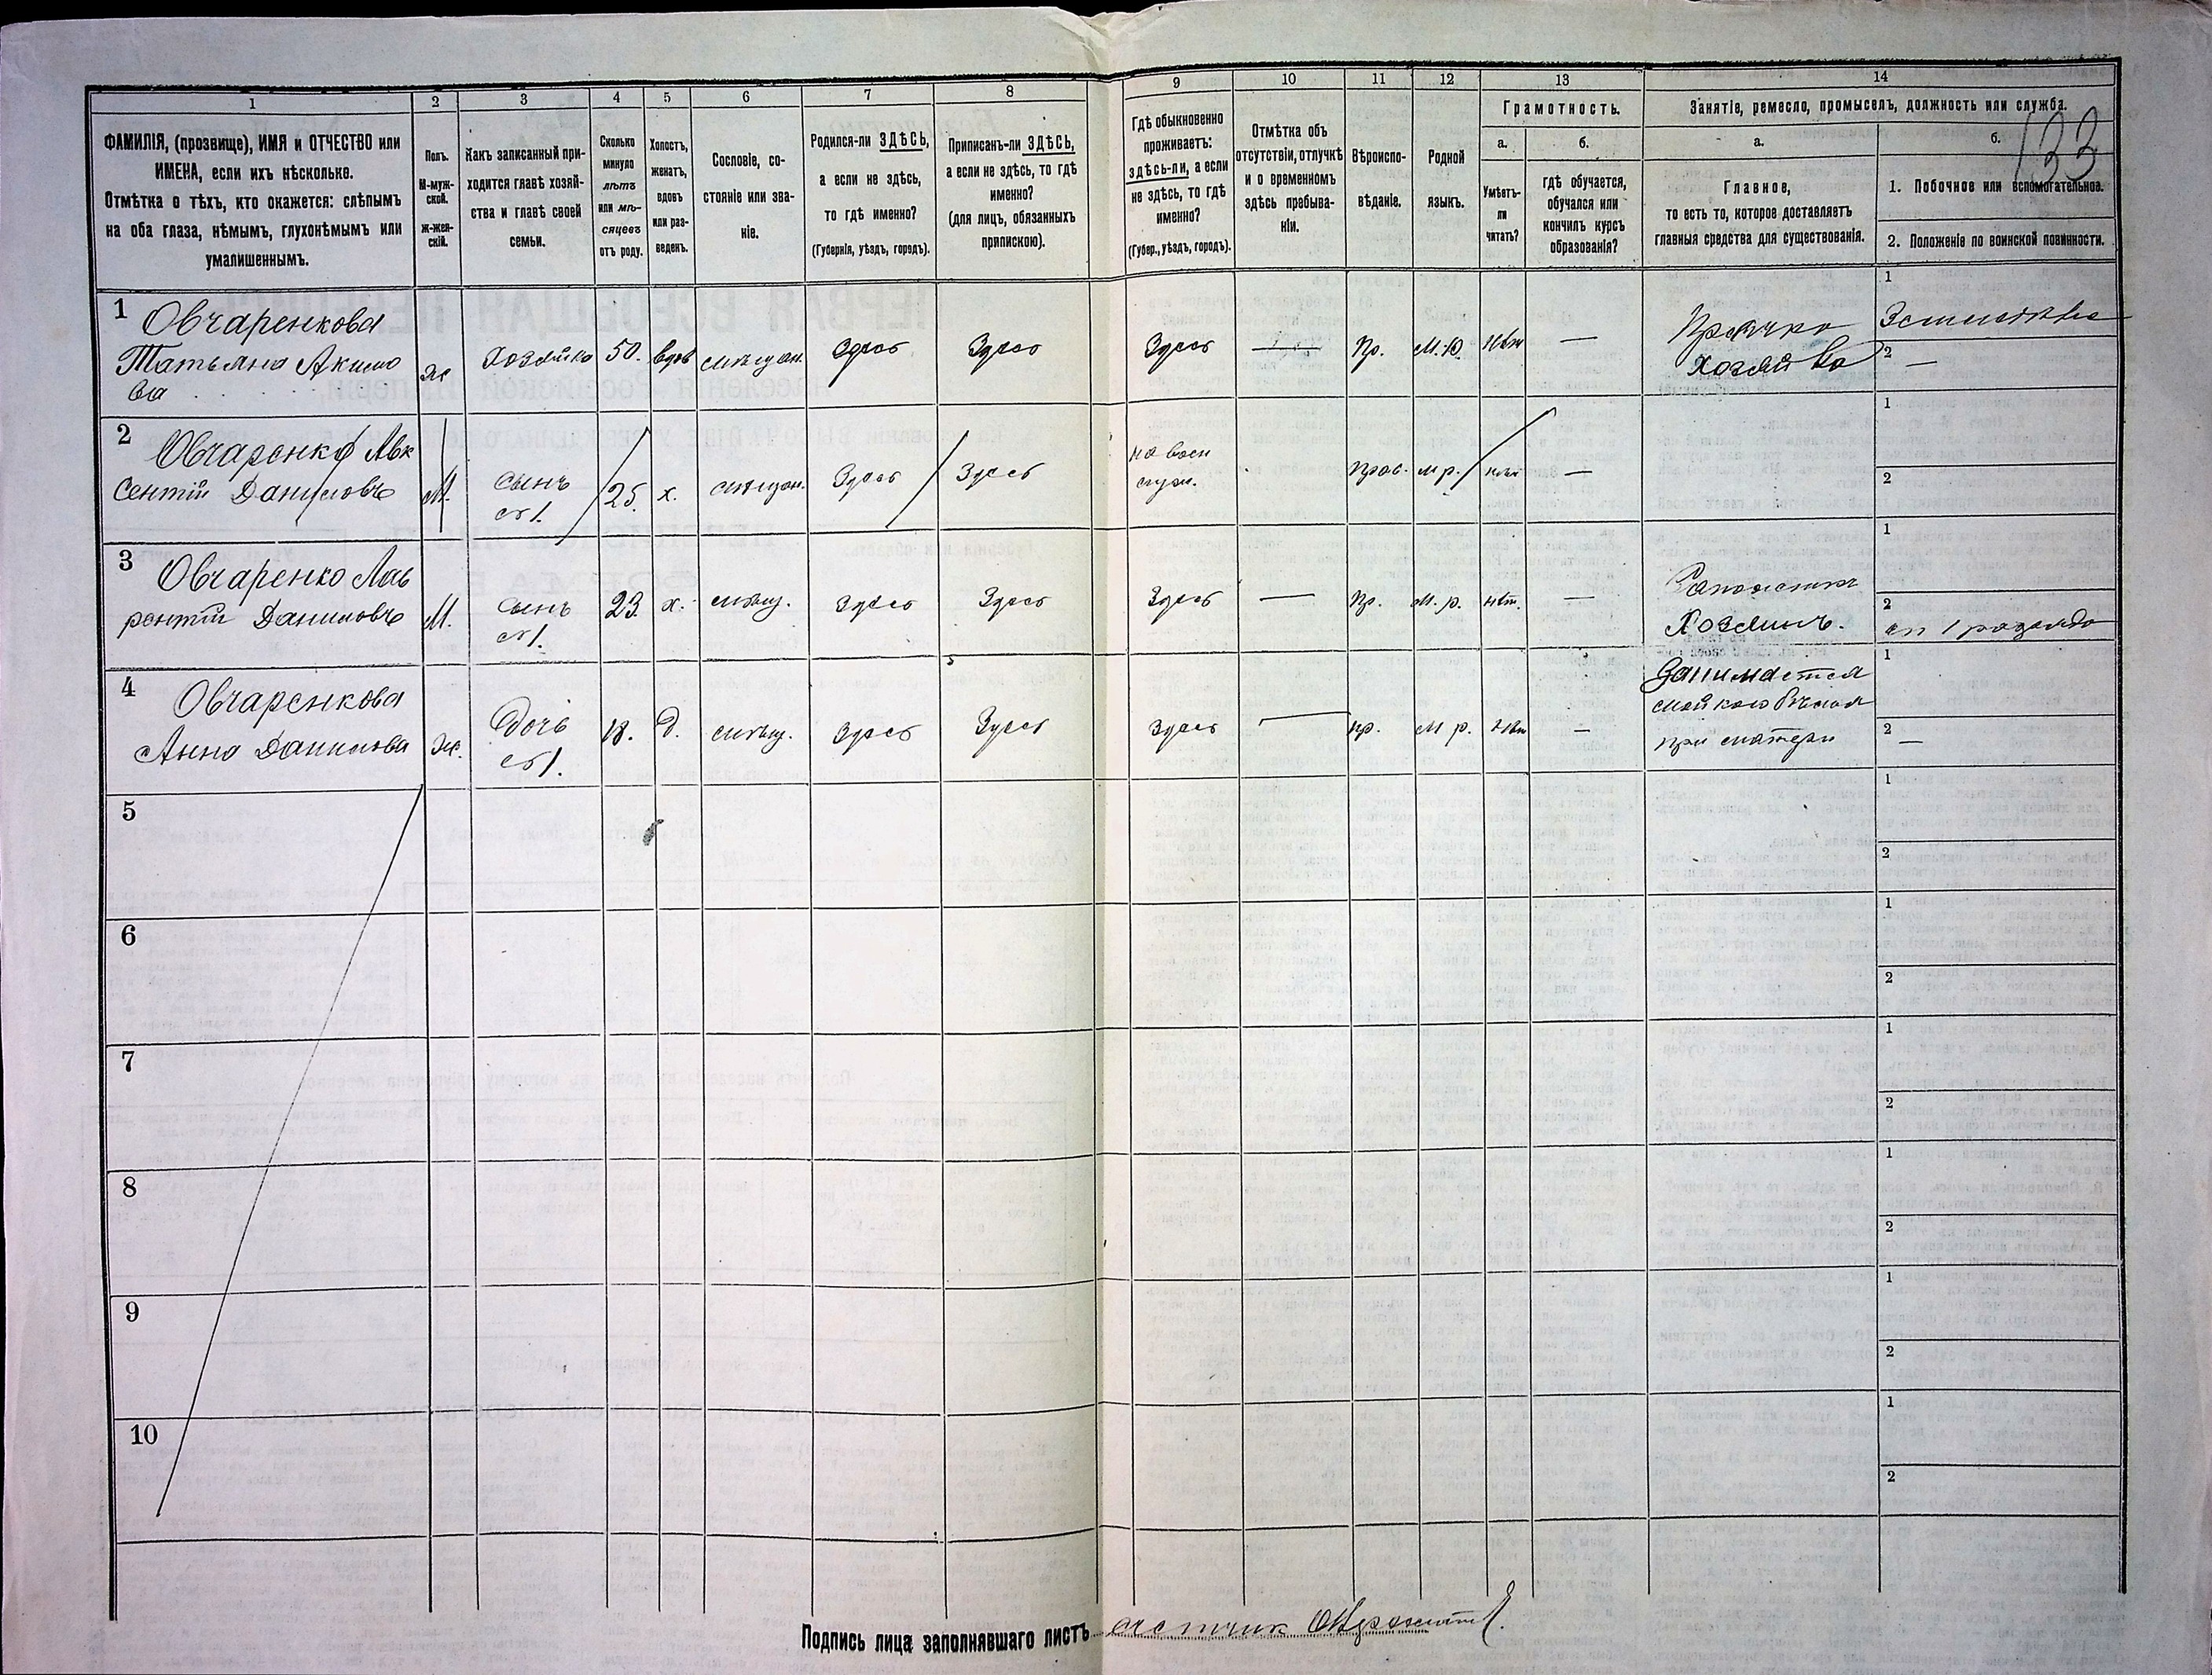 1 2 3 4 5 6 7 8 9 10 11 12 13 14
133
ФАМИЛІЯ, (прозвище), ИМЯ и ОТЧЕСТВО или
ИМЕНА, если ихъ нѣсколько.
Отмѣтка о тѣхъ, кто окажется: слѣпымъ
на оба глаза, нѣмымъ, глухонѣмымъ или
умалишеннымъ.
Полъ.
М-муж-
ской.
ж-жен-
скій.
Какъ записанный при-
ходится главѣ хозяй-
ства и главѣ своей
семьи.
Сколько
минуло
лѣтъ
или мѣ-
сяцевъ
отъ роду.
Холостъ,
женатъ,
вдовъ
или раз-
веденъ.
Сословіе, со-
стояніе или зва-
ніе.
Родился-ли ЗДѢСЬ,
а если не здѣсь,
то гдѣ именно?
(Губернія, уѣздъ, городъ).
Приписанъ-ли ЗДѢСЬ,
а если не здѣсь, то гдѣ
именно?
(для лицъ, обязанныхъ
припискою).
Гдѣ обыкновенно
проживаетъ:
здѣсь-ли, а если
не здѣсь, то гдѣ
именно?
(Губер., уѣздъ, городъ).
Отмѣтка объ
отсутствіи, отлучкѣ
и о временномъ
здѣсь пребыва-
ніи.
Вѣроиспо-
вѣданіе.
Родной
языкъ.
Грамотность.
а.
Умѣетъ-
ли
читать?
б.
гдѣ обучается,
обучался или
кончилъ курсъ
образованія?
Занятіе, ремесло, промыселъ, должность или служба.
а.
Главное,
то есть то, которое доставляетъ
главныя средства для существованія.
б.
1. Побочное или вспомогательное.
2. Положеніе по воинской повинности.
1 Овчаренкова
Татьяна Акимо
ва
ж хозяйка 50. вдов мѣщан. Здесь Здесь Здесь — Пр. М.Ю. нѣт —
Прачка
хозяйка
1
2 —
2 Овчаренко Авк
сентій Даниловъ
М. сынъ
от 1. 25. х. мѣщан. Здесь Здесь
на воен
служ.
Прав. м р. нѣт —
1
2
3 Овчаренко Лав
рентій Даниловъ
М. сынъ
от 1. 23. х. мѣщ. Здесь Здесь Здесь — Пр. М. р. нѣт. —
Сапожникъ
Хозяинъ.
1
2 1 разряда
4 Овчаренкова
Анна Данилова
ж. Дочь
от 1. 18. д. мѣщ. Здесь Здесь Здесь — пр. М р. нѣт —
Занимается
мойкою бѣлья
при матери
1
2 —
5 1 2
6 1 2
7 1 2
8 1 2
9 1 2
10 1 2
Подпись лица заполнявшаго листъ